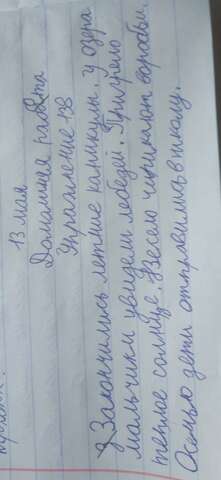 13 мая
Домашняя работа
Упражнение 198
Закончились летние каникулы. У озера
мальчики увидели лебедей. Пригрело
теплое солнце. Весело чирикают воробьи.
Осенью дети отправились в школу.